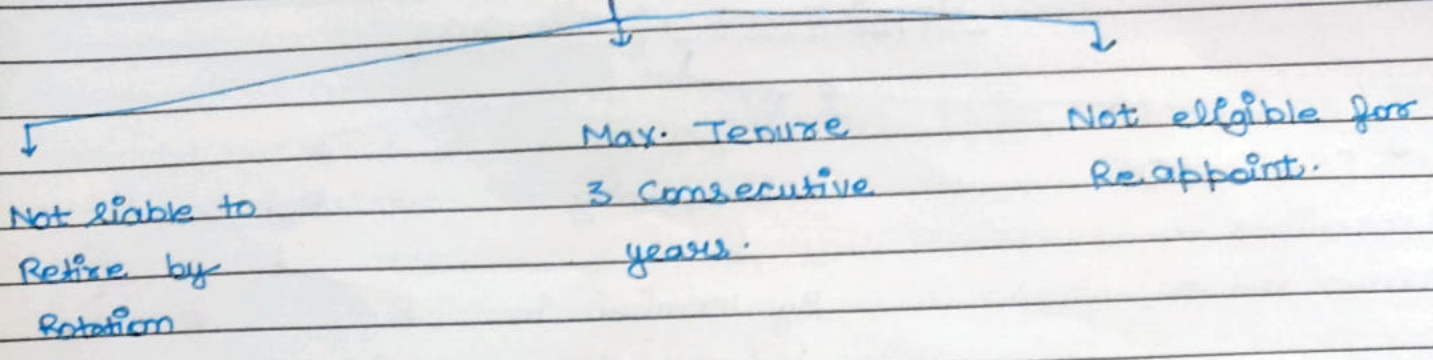 Not liable to
Retire by
Rotation
Max. Tenure
3 Consecutive
years.
Not eligible for
Reappoint.